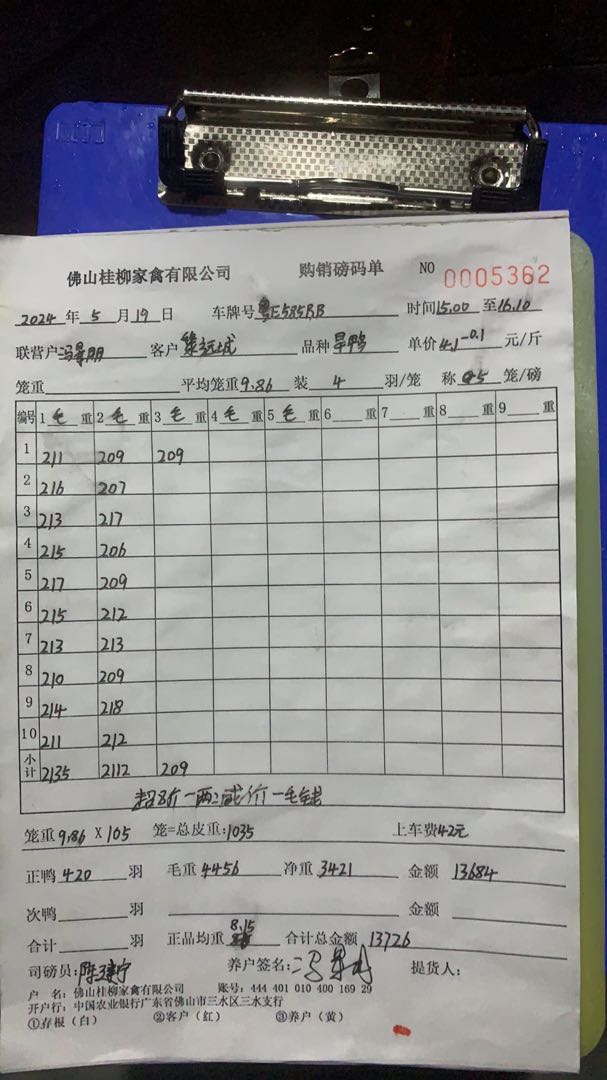 佛山桂柳家禽有限公司 购销磅码单 NO 0005362
2024 年 5 月 19 日 车牌号 粤E585RB 时间 15.00 至 16.10
联营户 冯景明 客户 品种 旱鸭 单价 4.1-0.1 元/斤
笼重 平均笼重 9.86 装 4 羽/笼 称 5 笼/磅
编号 1 毛 重 2 毛 重 3 毛 重 4 毛 重 5 毛 重 6 重 7 重 8 重 9 重
1 211 209 209
2 216 207
3 213 217
4 215 206
5 217 209
6 215 212
7 213 213
8 210 209
9 214 218
10 211 212
小计 2135 2112 209
超8斤一两减价一毛钱
笼重 9.86 X 105 笼=总皮重: 1035 上车费 42元
正鸭 420 羽 毛重 4456 净重 3421 金额 13684
次鸭 羽 金额
合计 羽 正品均重 8.15 合计总金额 13726
司磅员: 养户签名: 提货人:
户 名: 佛山桂柳家禽有限公司 账号: 444 401 010 400 169 29
开户行: 中国农业银行广东省佛山市三水区三水支行
①存根（白） ②客户（红） ③养户（黄）